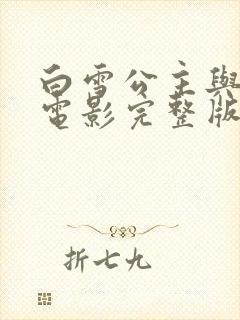 白雪公主與
電影完整版
折七九